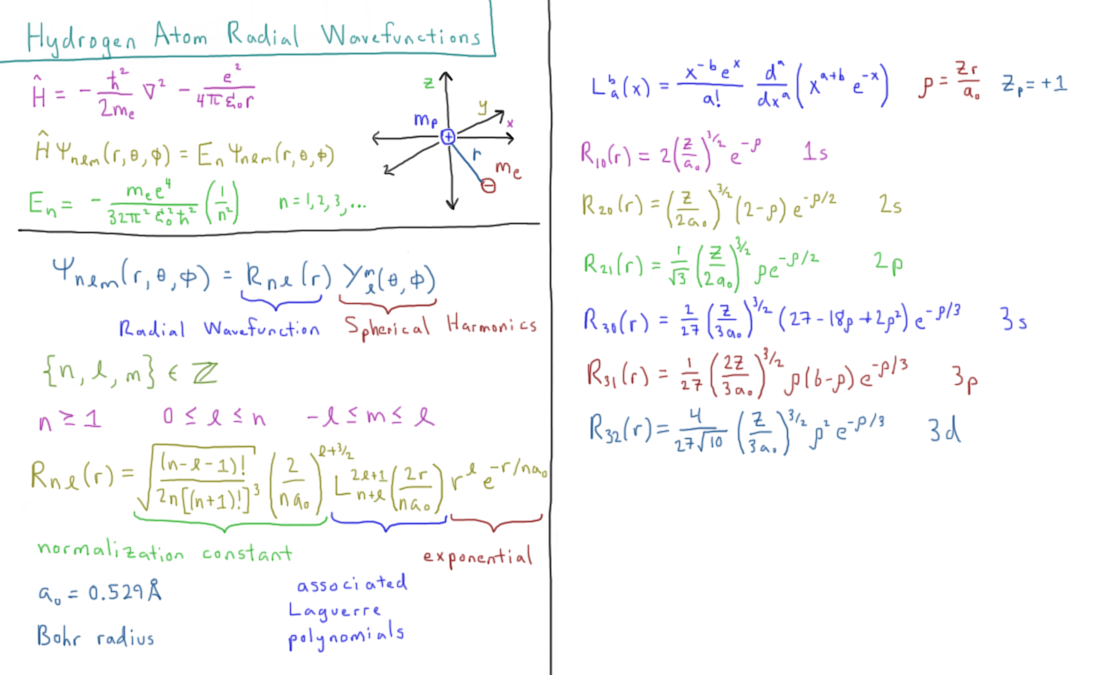 Hydrogen Atom Radial Wavefunctions
Ĥ = - ℏ²/2mₑ ∇² - e²/4πε₀r
Ĥ Ψnlm(r,θ,ϕ) = En Ψnlm(r,θ,ϕ)
En = - mₑe⁴/32π²ε₀²ℏ² (1/n²) n=1,2,3,...
z
y
x
mp
+
r
me
−
Ψnlm(r,θ,ϕ) = Rnl(r) Yₗᵐ(θ,ϕ)
Radial Wavefunction Spherical Harmonics
{n, l, m} ∈ ℤ
n ≥ 1 0 ≤ l ≤ n -l ≤ m ≤ l
Rnl(r) = √((n-l-1)!/2n[(n+1)!]³) (2/na₀)^(l+3/2) L_(n+l)^(2l+1) (2r/na₀) r^l e^(-r/na₀)
normalization constant exponential
a₀ = 0.529Å associated
Laguerre
Bohr radius polynomials
L_a^b(x) = x^(-b)e^x/a! d^a/dx^a (x^(a+b) e^(-x)) ρ = Zr/a₀ Zp = +1
R₁₀(r) = 2(Z/a₀)^(3/2) e^(-ρ) 1s
R₂₀(r) = (Z/2a₀)^(3/2) (2-ρ) e^(-ρ/2) 2s
R₂₁(r) = 1/√3 (Z/2a₀)^(3/2) ρe^(-ρ/2) 2p
R₃₀(r) = 2/27 (Z/3a₀)^(3/2) (27-18ρ+2ρ²) e^(-ρ/3) 3s
R₃₁(r) = 1/27 (2Z/3a₀)^(3/2) ρ(6-ρ) e^(-ρ/3) 3p
R₃₂(r) = 4/27√10 (Z/3a₀)^(3/2) ρ² e^(-ρ/3) 3d